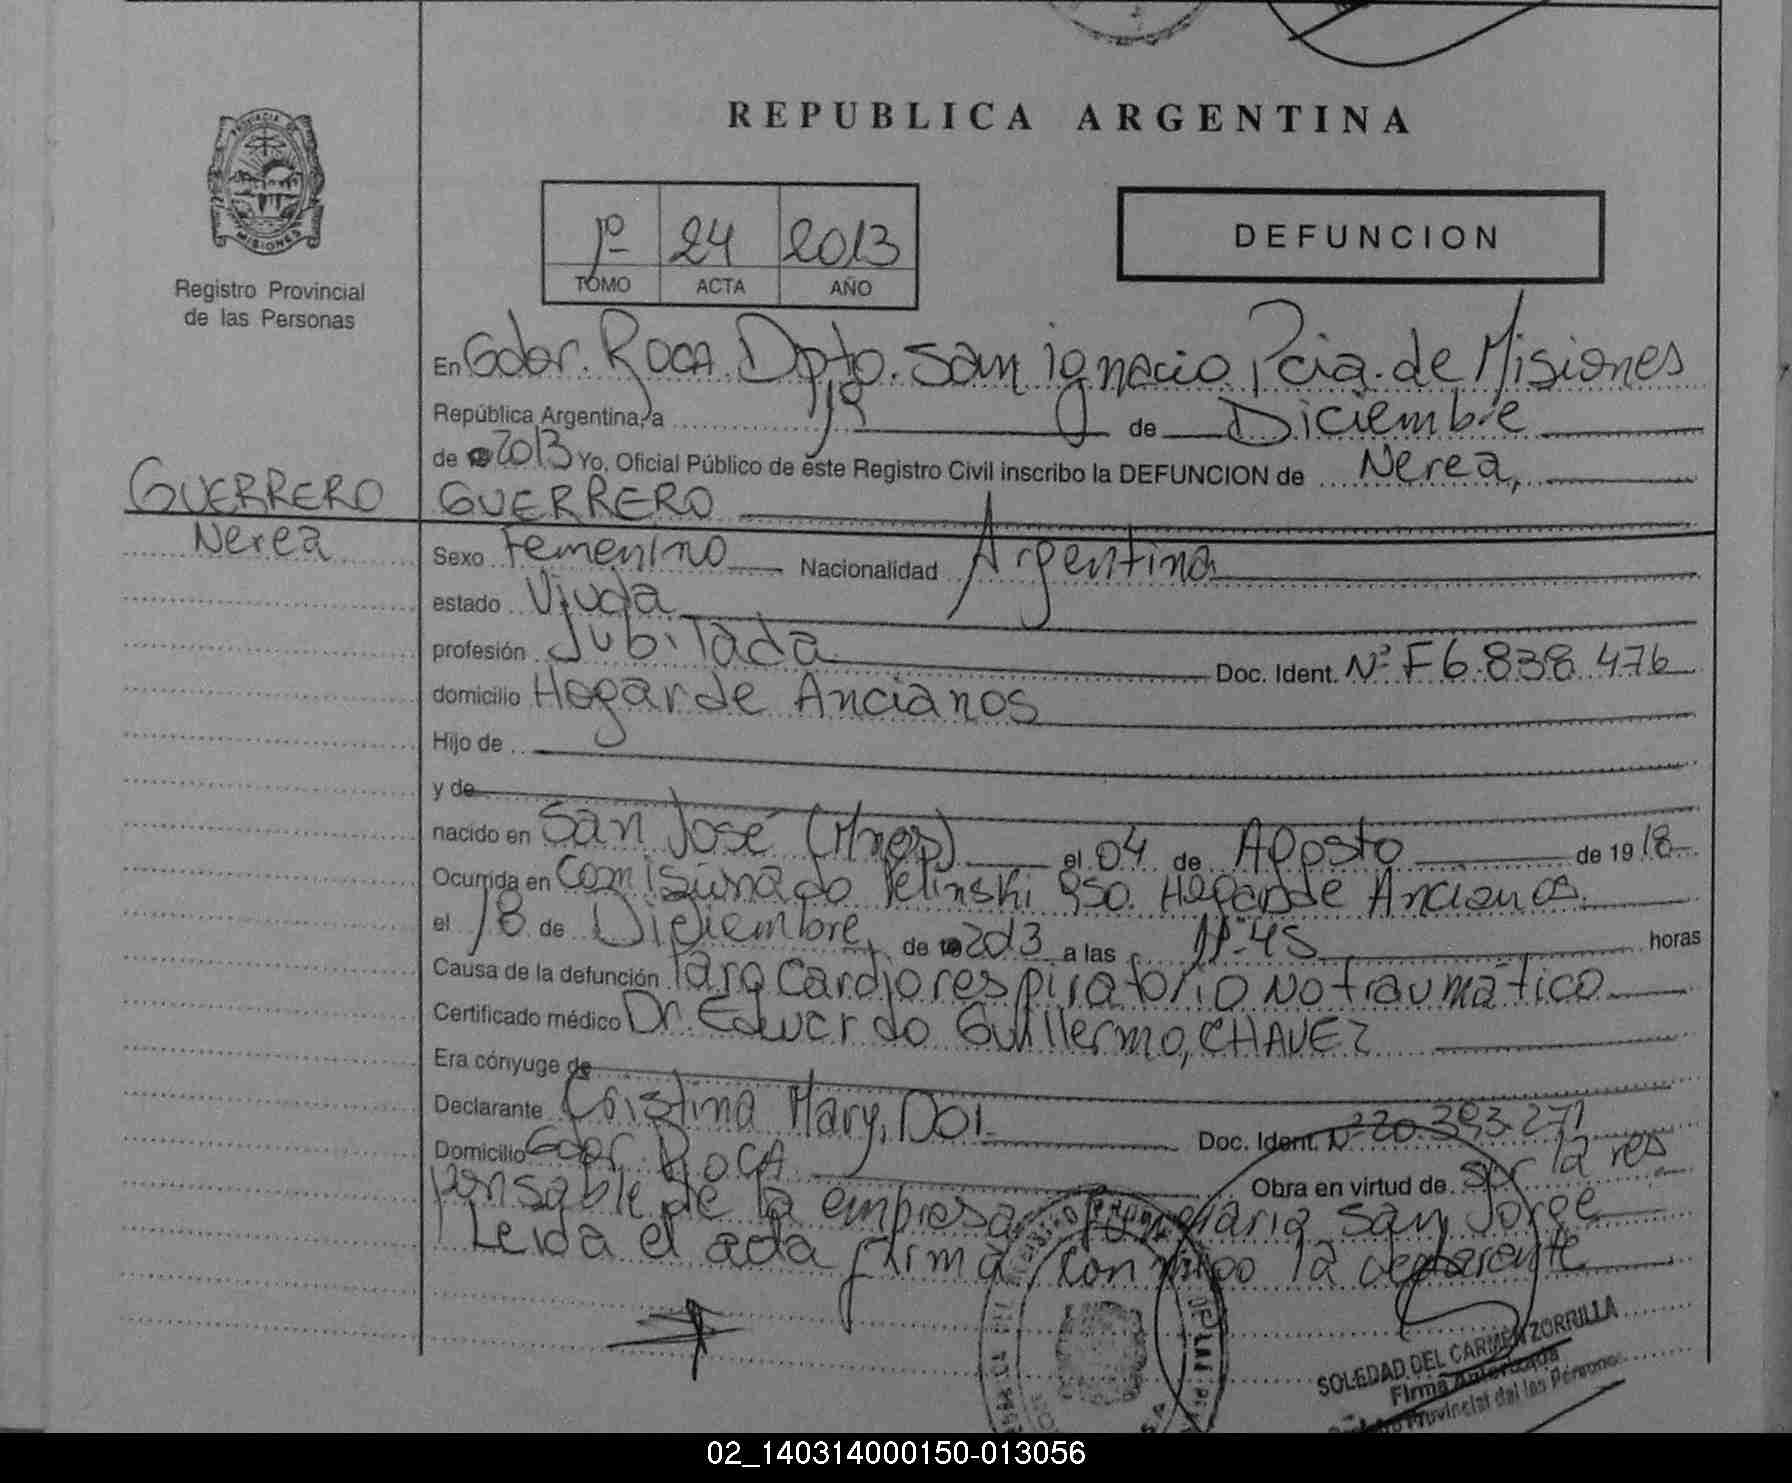 REPUBLICA ARGENTINA
PROVINCIA DE
MISIONES
Registro Provincial
de las Personas
1º 24 2013
TOMO ACTA AÑO
DEFUNCION
En Gdor. Roca Dpto. San Ignacio Pcia. de Misiones
República Argentina, a 19 de Diciembre
de 2013 Yo, Oficial Público de este Registro Civil inscribo la DEFUNCION de Nerea,
GUERRERO
GUERRERO
Nerea
Sexo Femenino Nacionalidad Argentina
estado Viuda
profesión Jubilada Doc. Ident. Nº F6.838.476
domicilio Hogar de Ancianos
Hijo de
y de
nacido en San José (Mnes) el 04 de Agosto de 1918
Ocurrida en Comisionado Pelinski Gso. Hogar de Ancianos
el 18 de Diciembre de 2013 a las horas
Causa de la defunción Paro Cardiorespiratorio No traumático
Certificado médico Dr. Eduardo Guillermo, CHAVEZ
Era cónyuge de
Declarante Cristina Mary, DOI Doc. Ident. Nº 20.393.271
Domicilio Gdor. ROCA Obra en virtud de ser la res
ponsable de la empresa funeraria San Jorge
Leida el acta firma conmigo la declarante
SOLEDAD DEL CARMEN ZORRILLA
Firma Autorizada
Provincial del las Personas
02_140314000150-013056